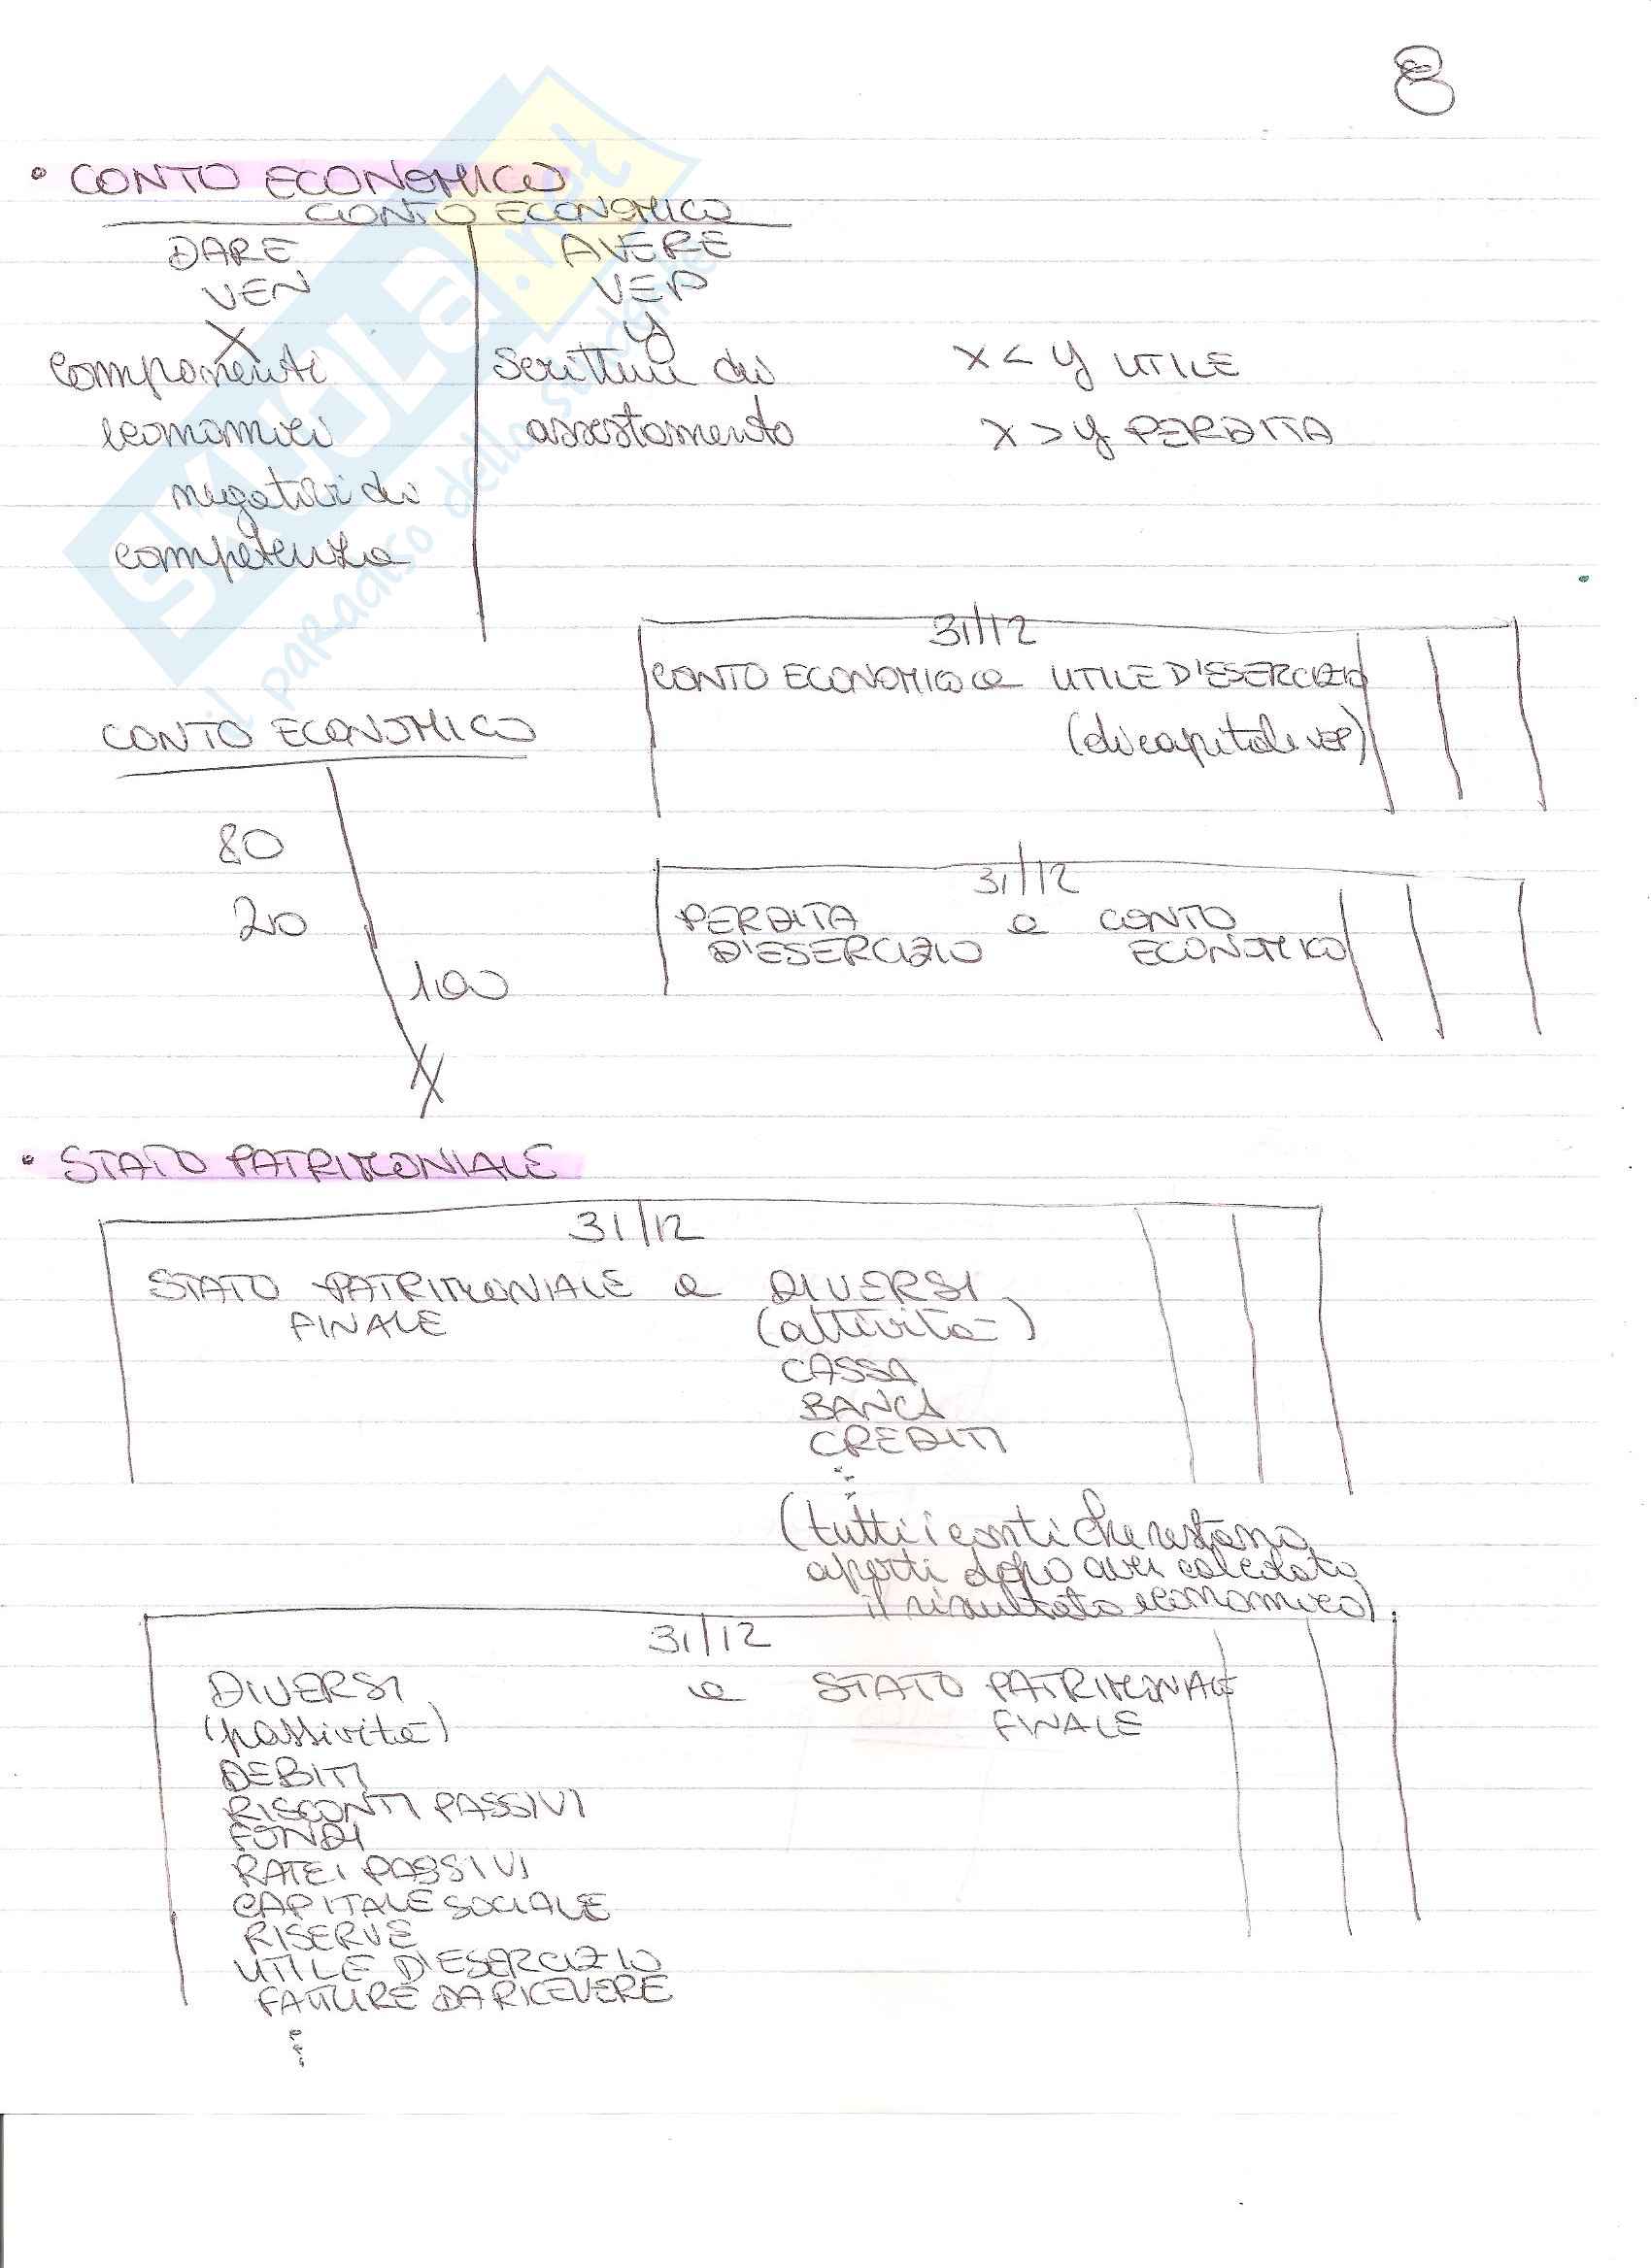 8
• CONTO ECONOMICO
CONTO ECONOMICO
DARE AVERE
VEN VEP
X y
componenti scritture di x < y UTILE
economici assestamento x > y PERDITA
negativi di
competenza
31/12
CONTO ECONOMICO a UTILE D'ESERCIZIO
(di capitale VEP)
CONTO ECONOMICO
80
20
100
31/12
PERDITA a CONTO
D'ESERCIZIO ECONOMICO
• STATO PATRIMONIALE
31/12
STATO PATRIMONIALE a DIVERSI
FINALE (attività)
CASSA
BANCA
CREDITI
(tutti i conti che restano
aperti dopo aver calcolato
il risultato economico)
31/12
DIVERSI a STATO PATRIMONIALE
(passività) FINALE
DEBITI
RISCONTI PASSIVI
FONDI
RATEI PASSIVI
CAPITALE SOCIALE
RISERVE
UTILE D'ESERCIZIO
FATTURE DA RICEVERE
SKUOLA.net
il paradiso dello studente